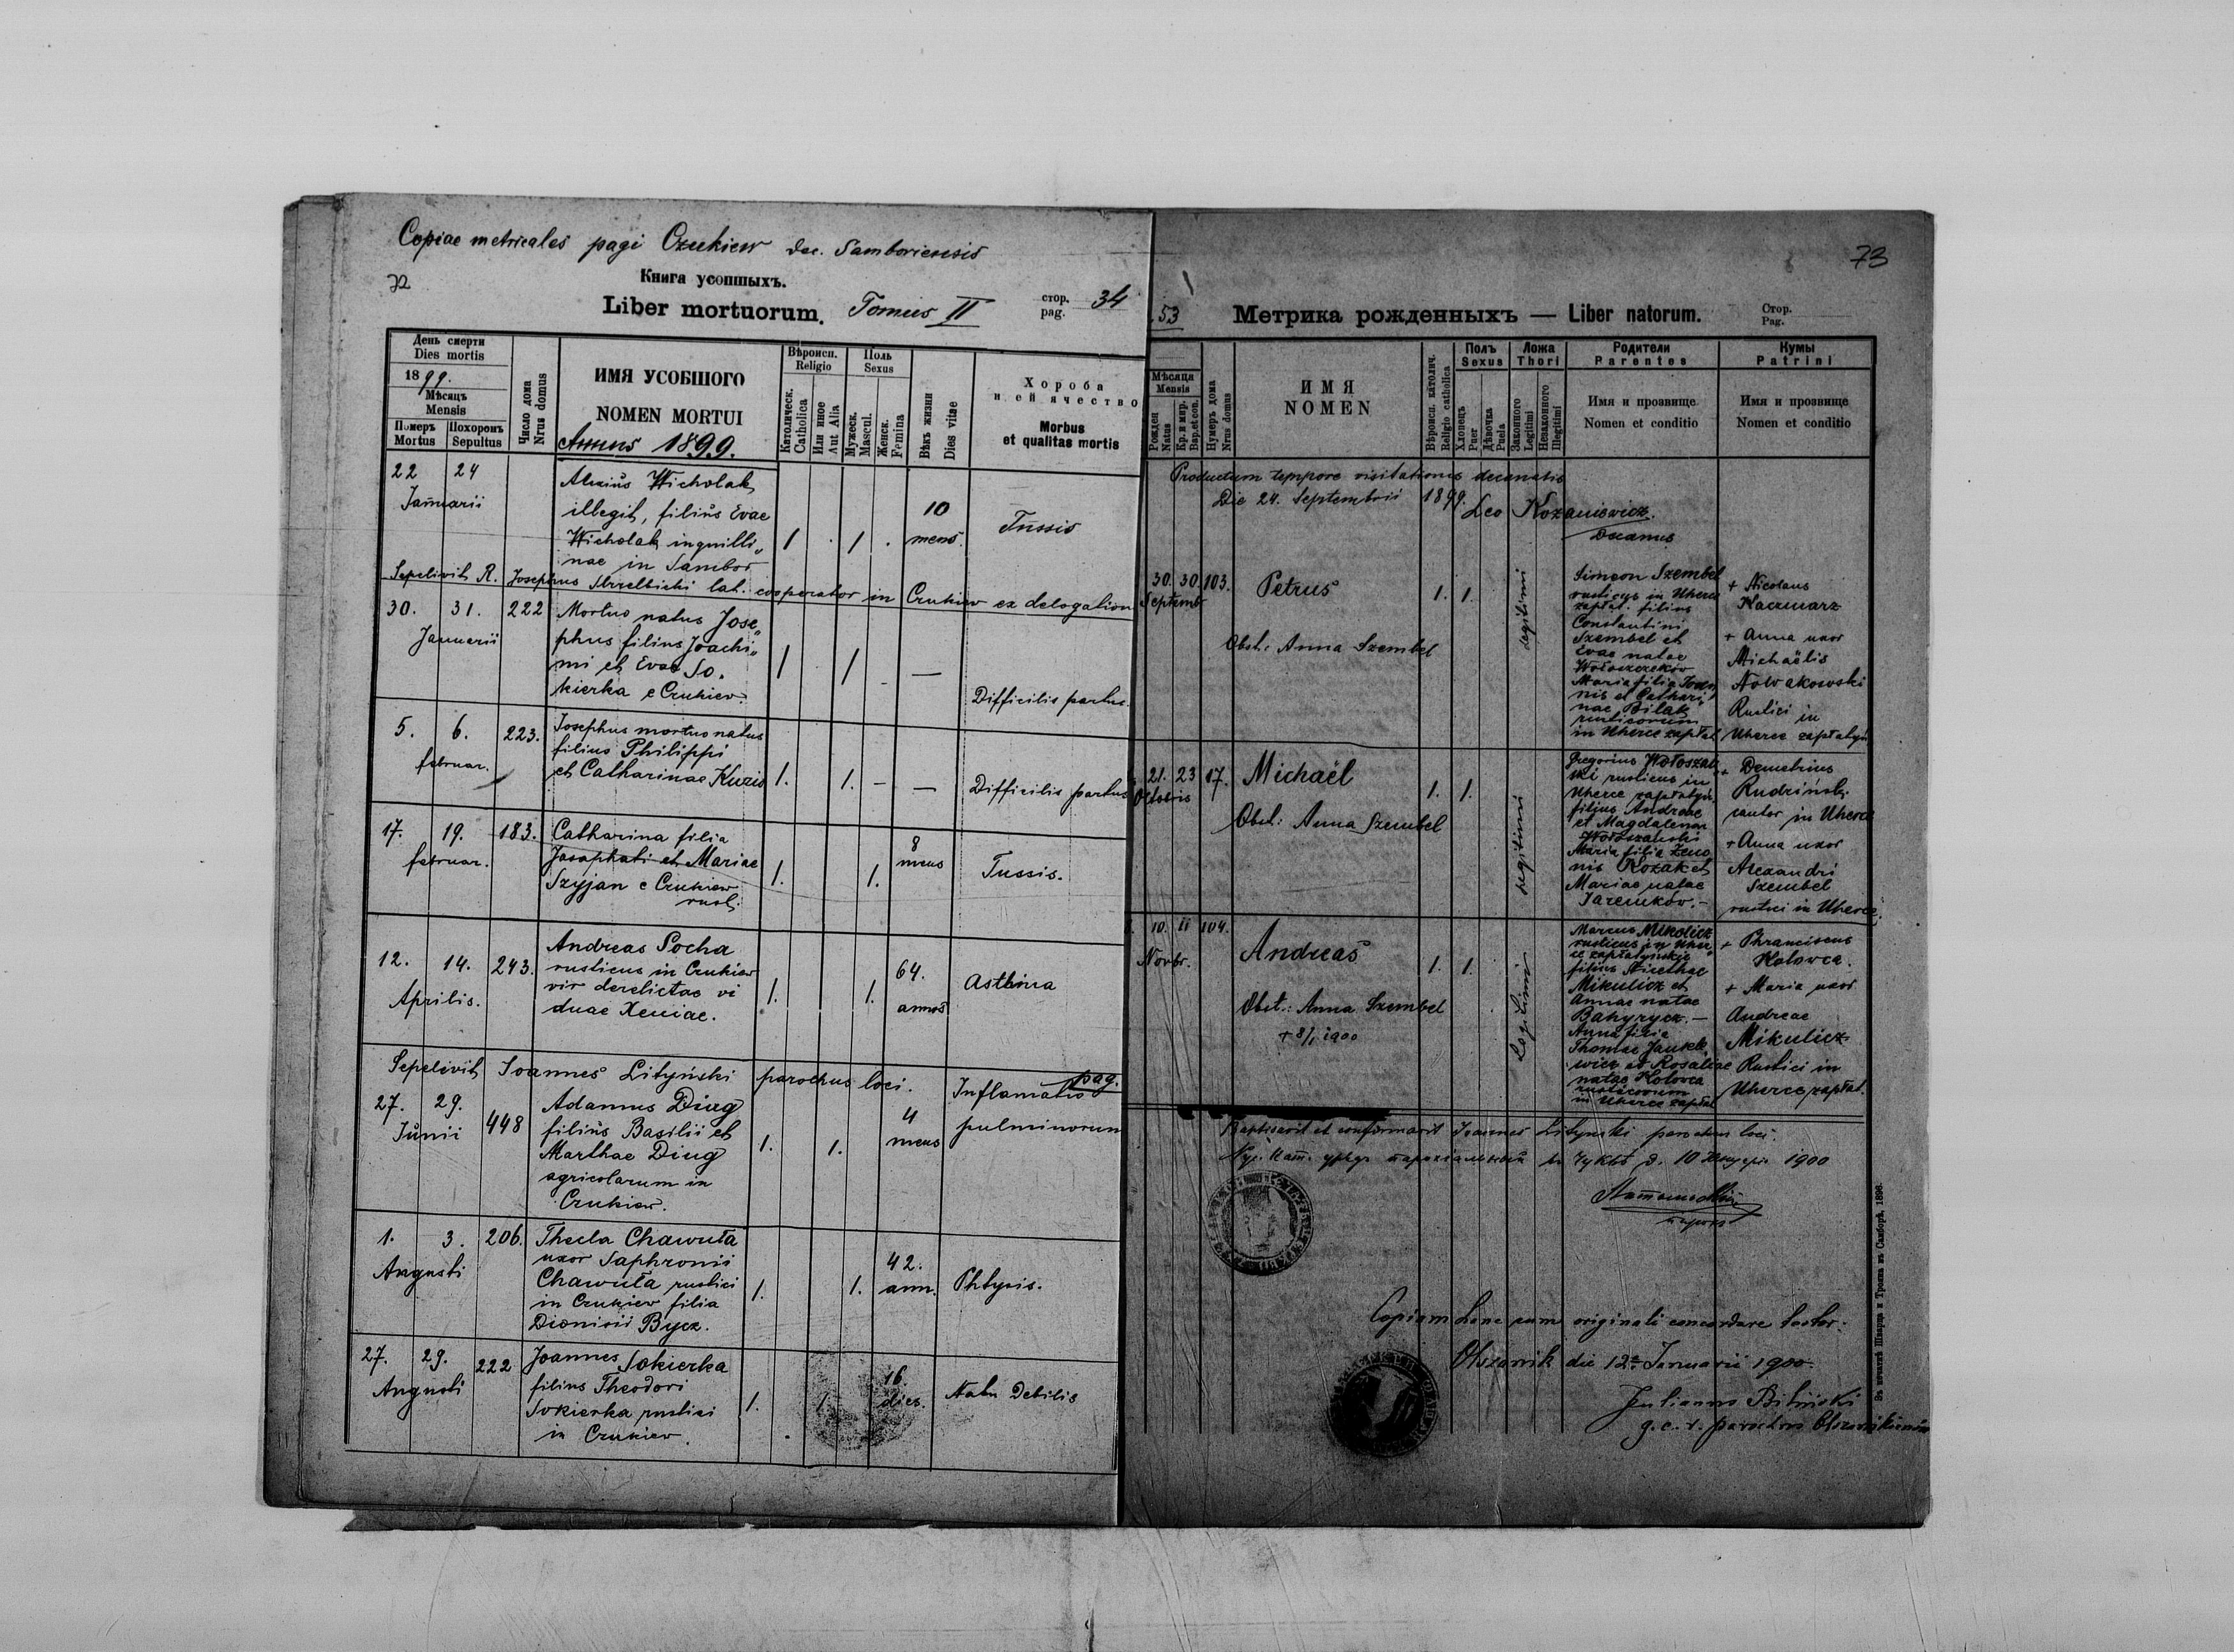 Copiae metricales pagi Czukiew dec. Samboriensis
72
Книга усопшыхъ.
Liber mortuorum. Tomus II
стор.
pag. 34
День смерти
Dies mortis
1899.
Мѣсяцъ
Mensis
Померъ
Mortus
Похоронъ
Sepultus
Число дома
Nrus domus
ИМЯ УСОБШОГО
NOMEN MORTUI
Annus 1899.
Вѣроисп.
Religio
Католическ.
Catholica
Или иное
Aut Alia
Поль
Sexus
Мужеск.
Mascul.
Женск.
Femina
Вѣкъ жизни
Dies vitae
Хороба
и ей ячество
Morbus
et qualitas mortis
22 24
Januarii
Alexius Wicholak
illegit, filius Evae
Wicholak inquilli„
nae in Sambor
1 . 1 .
10
mens.
Tussis
Sepelivit R. Josephus Strzelbicki lat. cooperator in Czukiew ex delegation
30. 31. 222
Januarii
Mortuo natus Jose„
phus filius Joachi„
mi et Evae So„
kierka e Czukiew.
1 1 - —
Difficilis partus.
5. 6. 223.
februar.
Josephus mortuo natus
filius Philippi
et Catharinae Kuzio
1. 1. - —
Difficilis partus
17. 19. 183.
februar.
Catharina filia
Josaphati et Mariae
Szyjan e Czukiew
rust.
1. 1.
8
mens
Tussis.
12. 14. 243.
Aprilis.
Andreas Socha
rusticus in Czukiew
vir derelictae vi
duae Xeniae.
1. 1.
64.
annos
Asthma
Sepelivit Joannes Lityński parochus loci.
pag.
27. 29. 448
Junii
Adamus Diug
filius Basilii et
Marthae Diug
agricolarum in
Czukiew.
1. 1.
4
mens
Inflamatio
pulminorum
1. 3. 206.
Augusti
Thecla Chawuła
uxor Saphronii
Chawuła rustici
in Czukiew filia
Dionisii Bycz.
1. 1.
42.
ann.
Phtysis.
27. 29. 222
Augusti
Joannes Sokierka
filius Theodori
Sokierka rustici
in Czukiew.
1. 1.
16.
dies.
Natu Debilis
73
53
Метрика рожденныхъ — Liber natorum.
Стор.
Pag.
Мѣсяця
Mensis
Рожден
Natus
Кр. и мир.
Bap. et con.
Нумеръ дома
Nrus domus
ИМЯ
NOMEN
Вѣроисп. католич.
Religio catholica
Полъ
Sexus
Хлопецъ
Puer
Дѣвочка
Puela
Ложа
Thori
Законного
Legitimi
Незаконного
Illegitimi
Родители
Parentes
Имя и прозвище
Nomen et conditio
Кумы
Patrini
Имя и прозвище
Nomen et conditio
Productum tempore visitationis decanatis
Die 24. Septembrii 1899.
Leo Kozaniewicz.
Decanus
30. 30. 103.
Septemb.
Petrus
Obst.: Anna Szembel
1. 1.
legitimi
Simeon Szembel
rusticus in Uherce
zapłat. filius
Constantini
Szembel et
Evae natae
Wołoszczeków
Maria filia Joan„
nis et Cathari„
nae Bilak
rusticorum
in Uherce zapłat
+ Nicolaus
Kaczmarz
+ Anna uxor
Michaëlis
Nowakowski
Rustici in
Uherce zapłatyń
21. 23 17.
Octobris
Michaël
Obst.: Anna Szembel
1. 1.
legitimi
Gregorius Wołoszań„
ski rusticus in
Uherce zapłatyń.
filius Andreae
et Magdalenae
Wołoszański
Maria filia Zeno
nis Kozak et
Mariae natae
Jaremków.-
+ Demetrius
Rudzinsk.
cantor in Uherce
+ Anna uxor
Alexandri
Szembel
rustici in Uherce.
10. 11 104.
Novbr.
Andreas
Obst.: Anna Szembel
+ 8/1 1900
1. 1.
Legitimi
Marcus Mikolicz
rusticus in Uher„
ce zapłatyńskie
filius Nicethae
Mikulicz et
Annae natae
Bahyrycz.—
Anna filia
Thomae Jankie„
wicz et Rosaliae
natae Hołowca
rusticorum
in Uherce zapłat
+ Phranciscus
Hołowca.
+ Maria uxor
Andreae
Mikulicz
Rustici in
Uherce zapłat.
Baptisavit et confirmavit Joannes Lityński parochus loci.
10 1900
Copiam hanc cum originali concordare testor.
Olszanik die 12 Januarii 1900.
Julianus Biliński
g. c. r. parochus
Въ печатнѣ Шварца и Трояна въ Самборѣ, 1896.